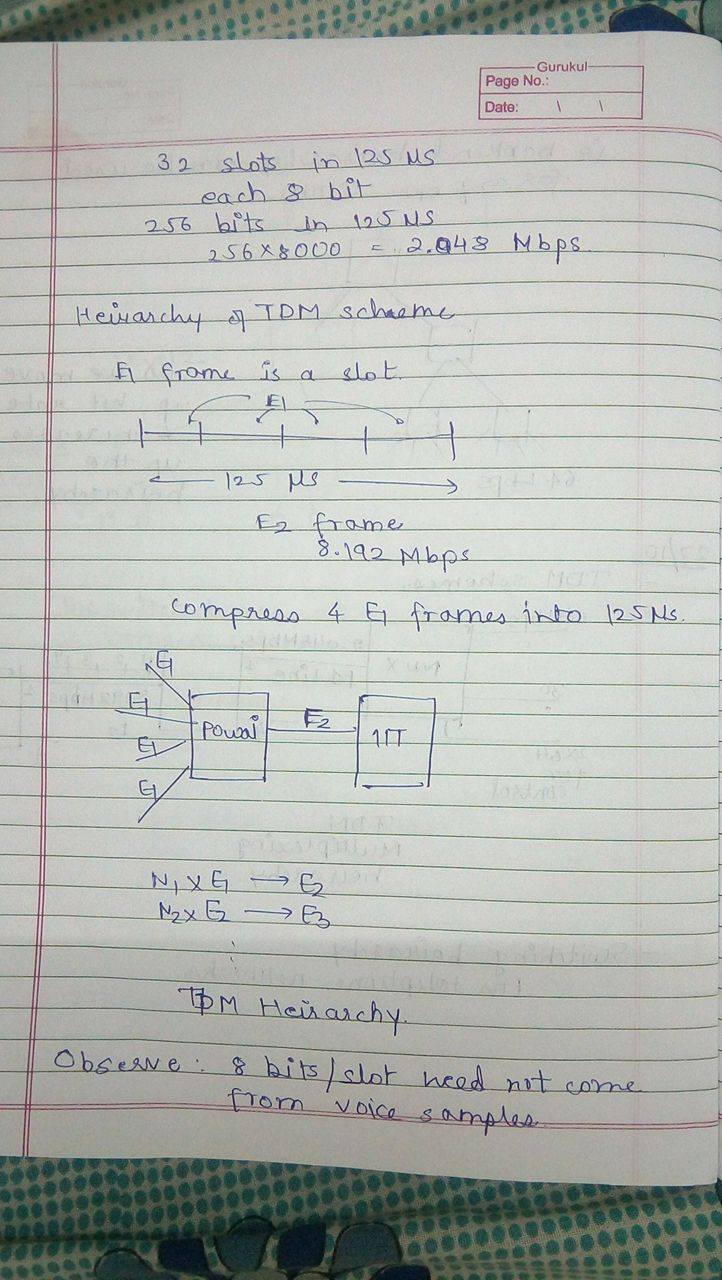 Gurukul
Page No.:
Date: \ \
32 slots in 125 μs
each 8 bit
256 bits in 125 μs
256×8000 = 2.048 Mbps
Heirarchy of TDM scheme
E1 frame is a slot.
E1
125 μs
E2 frame
8.192 Mbps
compress 4 E1 frames into 125 μs.
E1
E1
E1
E1
Powai
E2
IIT
N1 × E1 → E2
N2 × E2 → E3
⋮
TDM Heirarchy.
Observe: 8 bits/slot need not come
from voice samples.